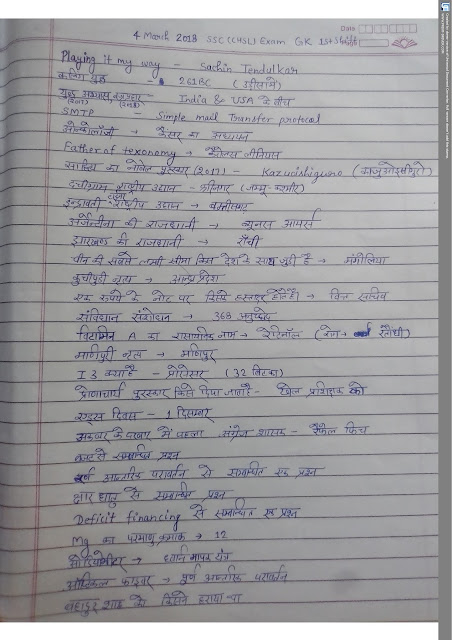 4 March 2018 SSC (CHSL) Exam GK 1st shift
Date
Playing it my way - Sachin Tendulkar
कलिंग युद्ध - 261BC (उड़ीसामें)
युद्ध अभ्यास, वज्रप्रहार - India & USA के बीच
SMTP - Simple mail Transfer protocol
ओन्कोलॉजी → कैंसर का अध्ययन
Father of texonomy → कैरोलस लीनियस
साहित्य का नोबेल पुरस्कार (2017) - Kazuoishiguro
दाचीग्राम राष्ट्रीय उद्यान - श्रीनगर (जम्मू-कश्मीर)
इन्द्रावती राष्ट्रीय उद्यान → छत्तीसगढ़
अर्जेन्टीना की राजधानी → ब्यूनस आयर्स
झारखण्ड की राजधानी → राँची
चीन की सबसे लम्बी सीमा किस देश के साथ जुड़ी है → मंगोलिया
कुचीपुड़ी नृत्य → आन्ध्रप्रदेश
एक रुपये के नोट पर किसके हस्ताक्षर होते हैं → वित्त सचिव
संविधान संशोधन → 368 अनुच्छेद
विटामिन A का रासायनिक नाम → रेटिनॉल (रोग → रतौंधी)
मणिपुरी नृत्य → मणिपुर
I 3 क्या है - प्रोसेसर (32 बिटका)
द्रोणाचार्य पुरस्कार किसे दिया जाता है - खेल प्रशिक्षक को
एड्स दिवस - 1 दिसम्बर
अकबर के दरबार में पहला अंग्रेज शासक - रैल्फ फिच
बजट से सम्बन्धित प्रश्न
पूर्ण आन्तरिक परावर्तन से सम्बन्धित एक प्रश्न
क्षार धातु से सम्बन्धित प्रश्न
Deficit financing से सम्बन्धित एक प्रश्न
Mg का परमाणु क्रमांक → 12
ऑडियोमीटर → ध्वनि मापक यंत्र
ऑप्टिकल फाइबर → पूर्ण आन्तरिक परावर्तन
बहादुर शाह को किसने हराया था